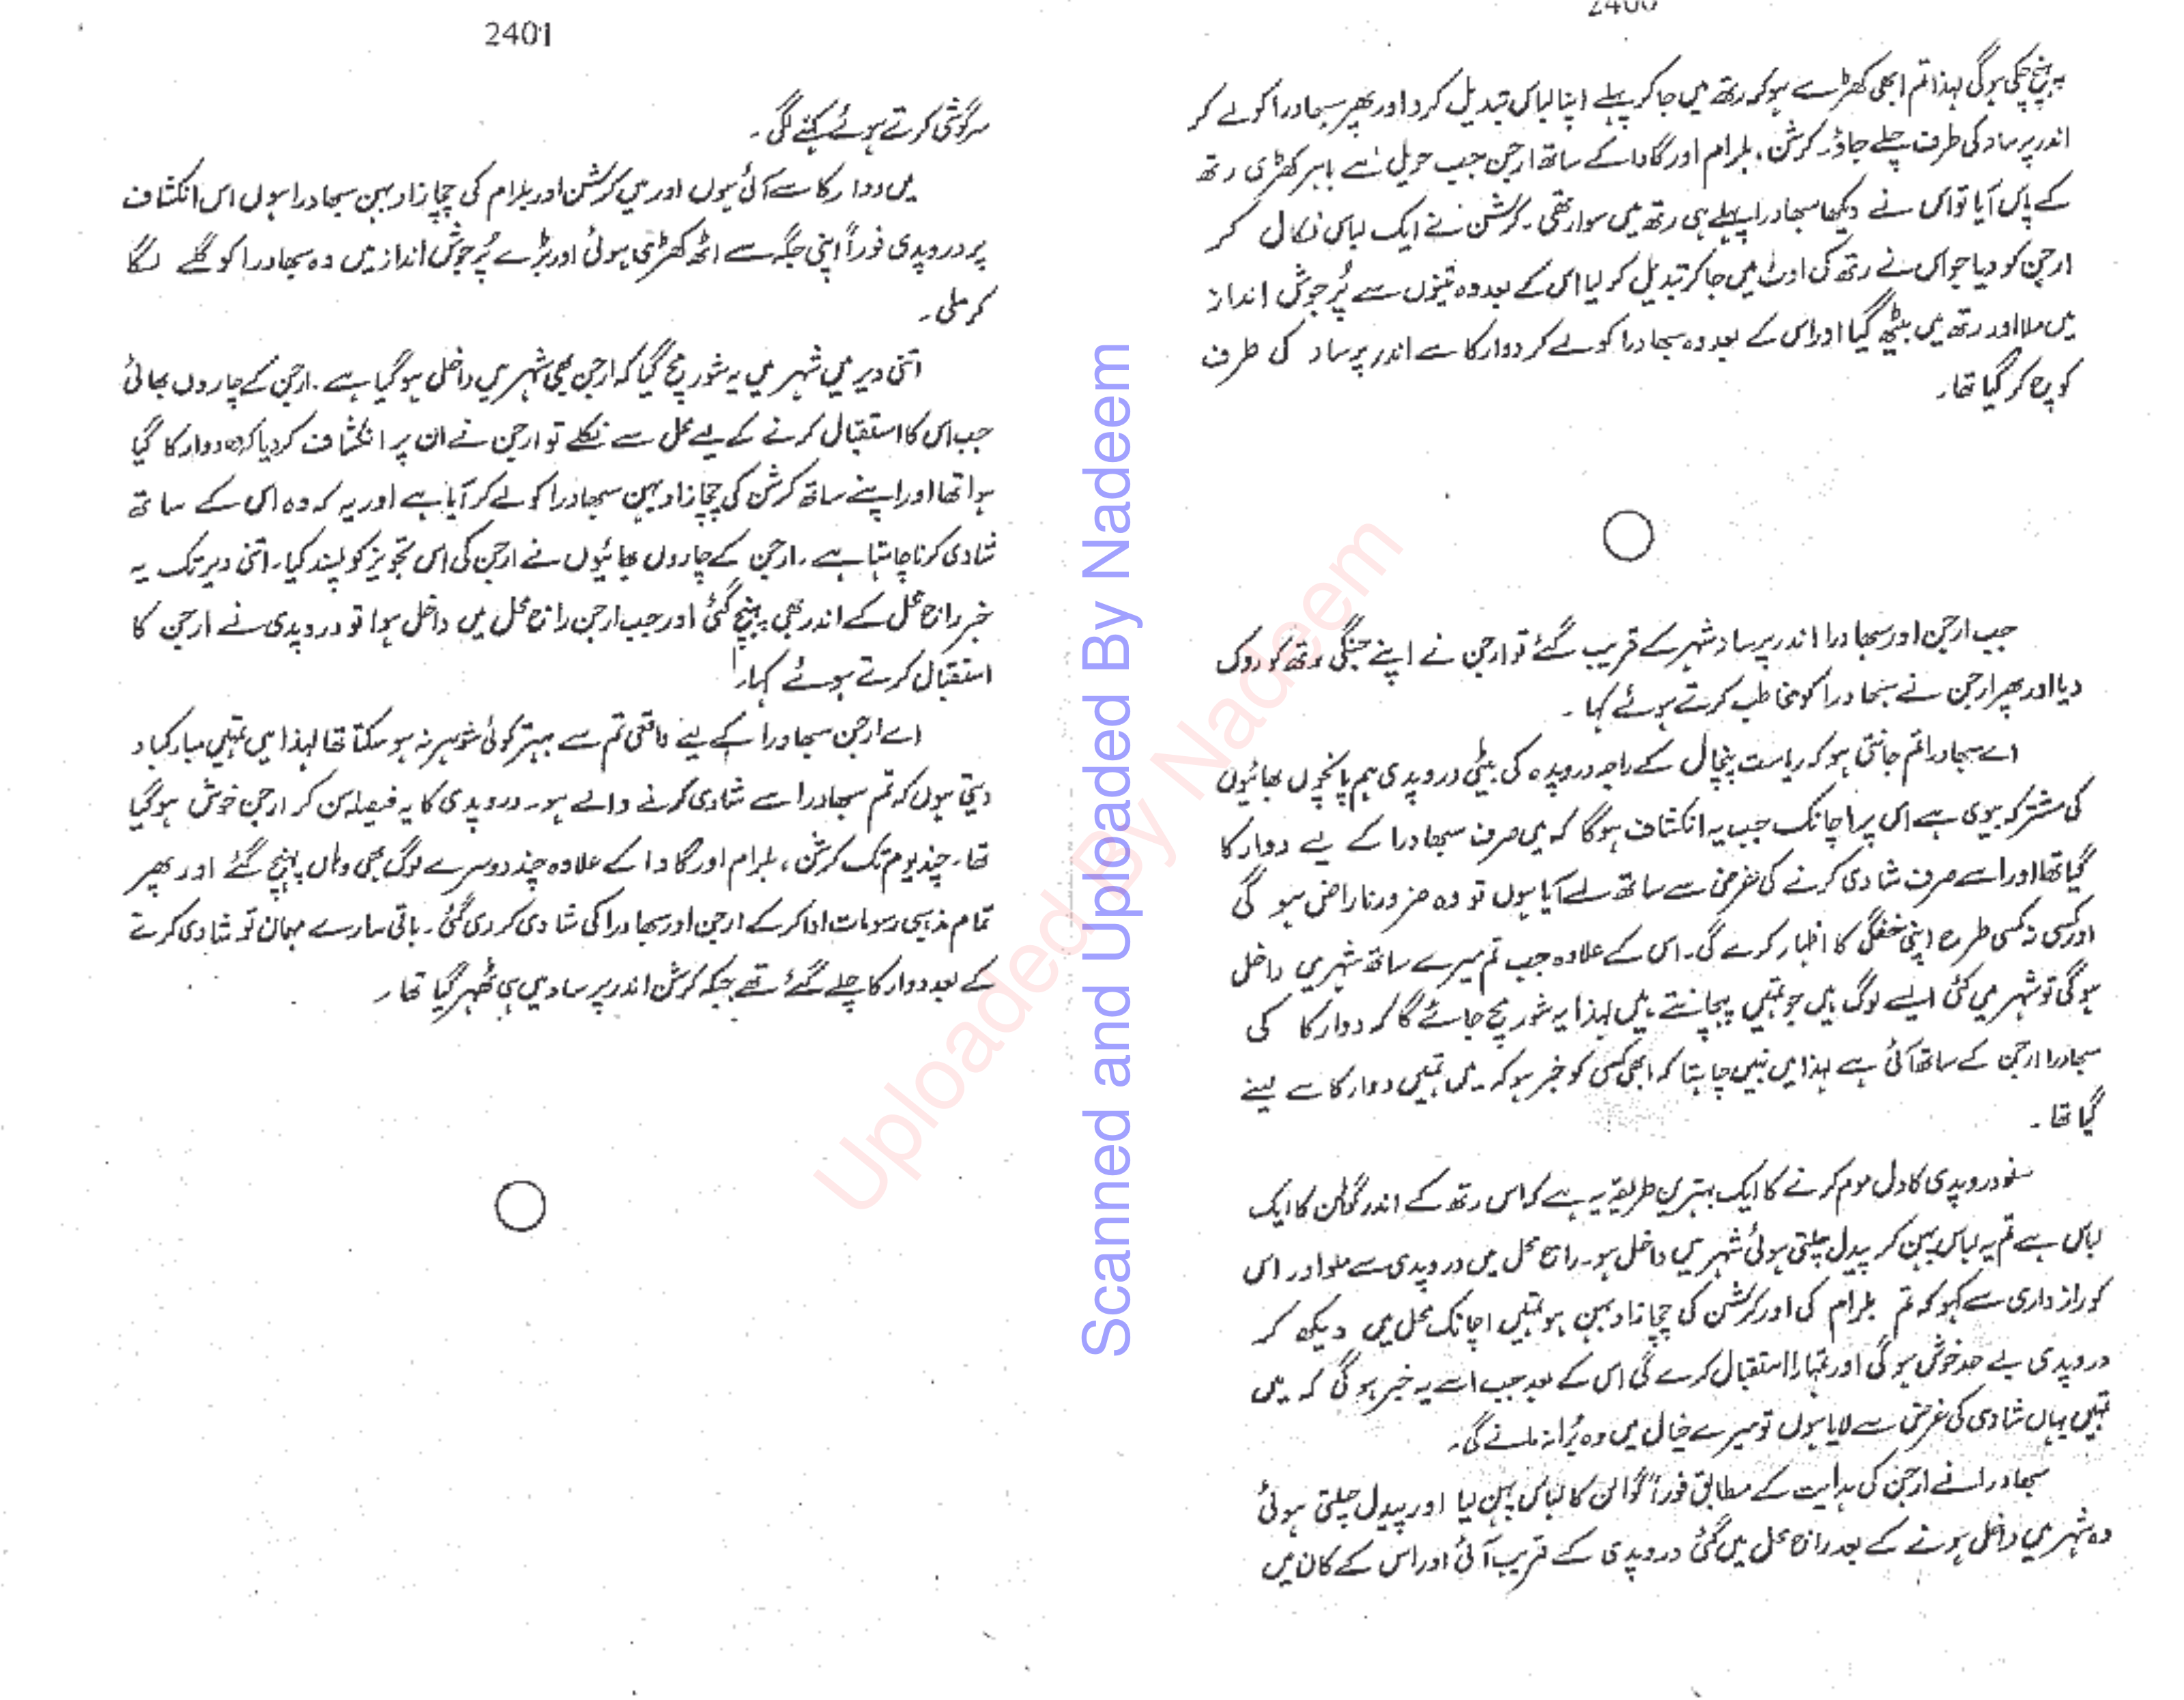 2400
پہنچ چکی ہوگی لہذا تم ابھی کھڑے ہو کر رتھ میں جا کر پہلے اپنا لباس تبدیل کرو اور پھر سبھادرا کو لے کر
اندر پرساد کی طرف چلے جاؤ۔ کرشن، بلرام اور گادا کے ساتھ ارجن جب حویلی سے باہر کھڑی رتھ
کے پاس آیا تو اس نے دیکھا سبھادرا پہلے ہی رتھ میں سوار تھی۔ کرشن نے ایک لباس نکال کر
ارجن کو دیا جو اس نے رتھ کی اوٹ میں جا کر تبدیل کر لیا اس کے بعد وہ تینوں سے پُر جوش انداز
میں ملا اور رتھ میں بیٹھ گیا اور اس کے بعد وہ سبھادرا کو لے کر دوارکا سے اندر پرساد کی طرف
کوچ کر گیا تھا۔
جب ارجن اور سبھادرا اندر پرساد شہر کے قریب گئے تو ارجن نے اپنے جنگی رتھ کو روک
دیا اور پھر ارجن نے سبھادرا کو مخاطب کرتے ہوئے کہا۔
اے سبھادرا تم جانتی ہو کہ ریاست پنچال کے راجہ دروپدہ کی بیٹی دروپدی ہم پانچوں بھائیوں
کی مشترکہ بیوی ہے اس پر اچانک جب یہ انکشاف ہوگا کہ میں صرف سبھادرا کے لیے دوارکا
گیا تھا اور اسے صرف شادی کرنے کی غرض سے ساتھ لے آیا ہوں تو وہ ضرور ناراض ہو گی
اور کسی نہ کسی طرح اپنی خفگی کا اظہار کرے گی۔ اس کے علاوہ جب تم میرے ساتھ شہر میں داخل
ہو گی تو شہر میں کئی ایسے لوگ ہیں جو تمہیں پہچانتے ہیں لہذا یہ شور مچ جائے گا کہ دوارکا کی
سبھادرا ارجن کے ساتھ آئی ہے لہذا میں نہیں چاہتا کہ ابھی کسی کو خبر ہو کہ میں تمہیں دوارکا سے لینے
گیا تھا۔
سنو دروپدی کا دل موم کرنے کا ایک بہترین طریقہ یہ ہے کہ اس رتھ کے اندر گوالن کا ایک
لباس ہے تم یہ لباس پہن کر پیدل چلتی ہوئی شہر میں داخل ہو۔ راج محل میں دروپدی سے ملو اور اس
کو رازداری سے کہو کہ تم بلرام کی اور کرشن کی چچا زاد بہن ہو تمہیں اچانک محل میں دیکھ کر
دروپدی بے حد خوش ہو گی اور تمہارا استقبال کرے گی اس کے بعد جب اسے یہ خبر ہو گی کہ میں
تمہیں یہاں شادی کی غرض سے لایا ہوں تو میرے خیال میں وہ بُرا نہ مانے گی۔
سبھادرا نے ارجن کی ہدایت کے مطابق فوراً گوالن کا لباس پہن لیا اور پیدل چلتی ہوئی
وہ شہر میں داخل ہونے کے بعد راج محل میں گئی دروپدی کے قریب آئی اور اس کے کان میں
2401
سرگوشی کرتے ہوئے کہنے لگی۔
میں دوارکا سے آئی ہوں اور میں کرشن اور بلرام کی چچا زاد بہن سبھادرا ہوں اس انکشاف
پر دروپدی فوراً اپنی جگہ سے اٹھ کھڑی ہوئی اور بڑے پُر جوش انداز میں وہ سبھادرا کو گلے لگا
کر ملی۔
اتنی دیر میں شہر میں یہ شور مچ گیا کہ ارجن بھی شہر میں داخل ہو گیا ہے۔ ارجن کے چاروں بھائی
جب اس کا استقبال کرنے کے لیے محل سے نکلے تو ارجن نے ان پر انکشاف کر دیا کہ وہ دوارکا گیا
ہوا تھا اور اپنے ساتھ کرشن کی چچا زاد بہن سبھادرا کو لے کر آیا ہے اور یہ کہ وہ اس کے ساتھ
شادی کرنا چاہتا ہے۔ ارجن کے چاروں بھائیوں نے ارجن کی اس تجویز کو پسند کیا۔ اتنی دیر تک یہ
خبر راج محل کے اندر بھی پہنچ گئی اور جب ارجن راج محل میں داخل ہوا تو دروپدی نے ارجن کا
استقبال کرتے ہوئے کہا۔
اے ارجن سبھادرا کے لیے واقعی تم سے بہتر کوئی شوہر نہ ہو سکتا تھا لہذا میں تمہیں مبارکباد
دیتی ہوں کہ تم سبھادرا سے شادی کرنے والے ہو۔ دروپدی کا یہ فیصلہ سن کر ارجن خوش ہو گیا
تھا۔ چند یوم تک کرشن، بلرام اور گادا کے علاوہ چند دوسرے لوگ بھی وہاں پہنچ گئے اور پھر
تمام مذہبی رسومات ادا کر کے ارجن اور سبھادرا کی شادی کر دی گئی۔ باقی سارے مہمان تو شادی کرتے
کے بعد دوارکا چلے گئے تھے جبکہ کرشن اندر پرساد میں ہی ٹھہر گیا تھا۔
Scanned and Uploaded By Nadeem
Uploaded By Nadeem